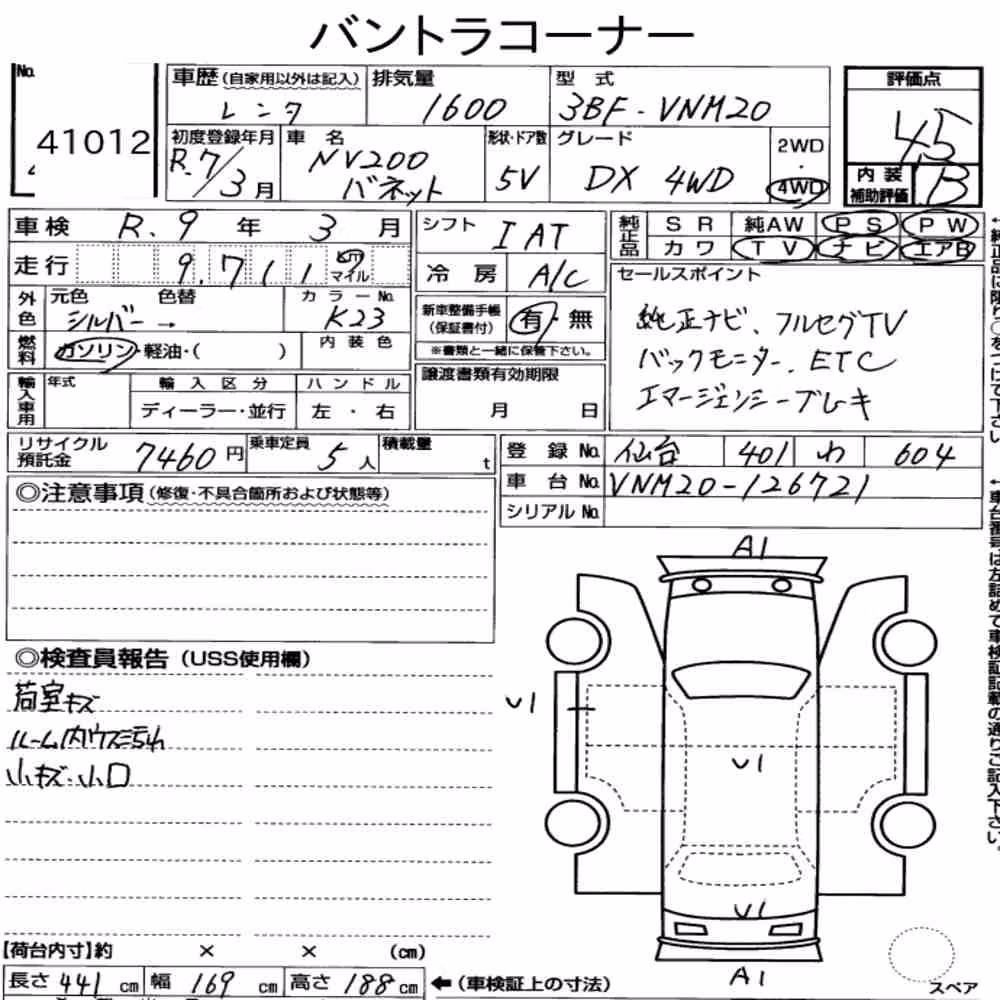 バントラコーナー
No. 41012
車歴 (自家用以外は記入) レンタ
排気量 1600
型式 3BF-VNM20
評価点 4.5
内装補助評価 B
初度登録年月 R.7/3月
車名 NV200 バネット
形状・ドア数 5V
グレード DX 4WD
2WD・4WD
車検 R.9年 3月
走行 9,711 km マイル
外色 元色 シルバー → 色替
カラーNo. K23
燃料 ガソリン・軽油・( )
内装色
輸入車用 年式
輸入区分 ディーラー・並行
ハンドル 左・右
シフト IAT
冷房 A/C
新車整備手帳(保証書付) 有・無
※書類と一緒に保管下さい。
譲渡書類有効期限 月 日
純正品 SR 純AW PS PW
カワ TV ナビ エアB
セールスポイント
純正ナビ、フルセグTV
バックモニター、ETC
エマージェンシーブレーキ
←純正品に限り○をつけて下さい。
リサイクル預託金 7460円
乗車定員 5人
積載量 t
登録No. 仙台 401 わ 604
車台No. VNM20-126721
シリアルNo.
←車台番号は左詰めで車検証記載の通りご記入下さい。
◎注意事項(修復・不具合箇所および状態等)
◎検査員報告(USS使用欄)
荷室キズ
ルーム内ウス汚れ
小キズ・小凹
A1
U1
U1
U1
A1
スペア
【荷台内寸】約 × × (cm)
長さ 441 cm 幅 169 cm 高さ 188 cm ←(車検証上の寸法)